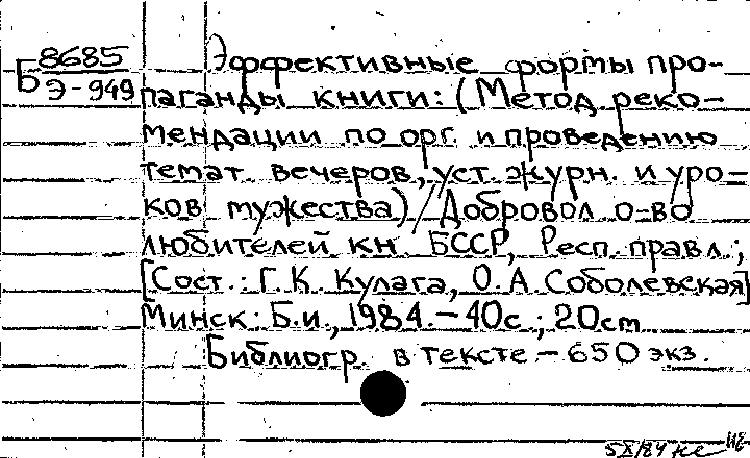 8685 Эффективные формы про-
Б Э-949 паганды книги: (Метод. реко-
мендации по орг. и проведению
темат. вечеров, уст. журн. и уро-
ков мужества) / Добровол. о-во
любителей кн. БССР, Респ. правл.;
[Сост.: Г. К. Кулага, О. А. Соболевская]
Минск: Б.и., 1984. - 40с.; 20см
Библиогр. в тексте - 650 экз.
5X/84